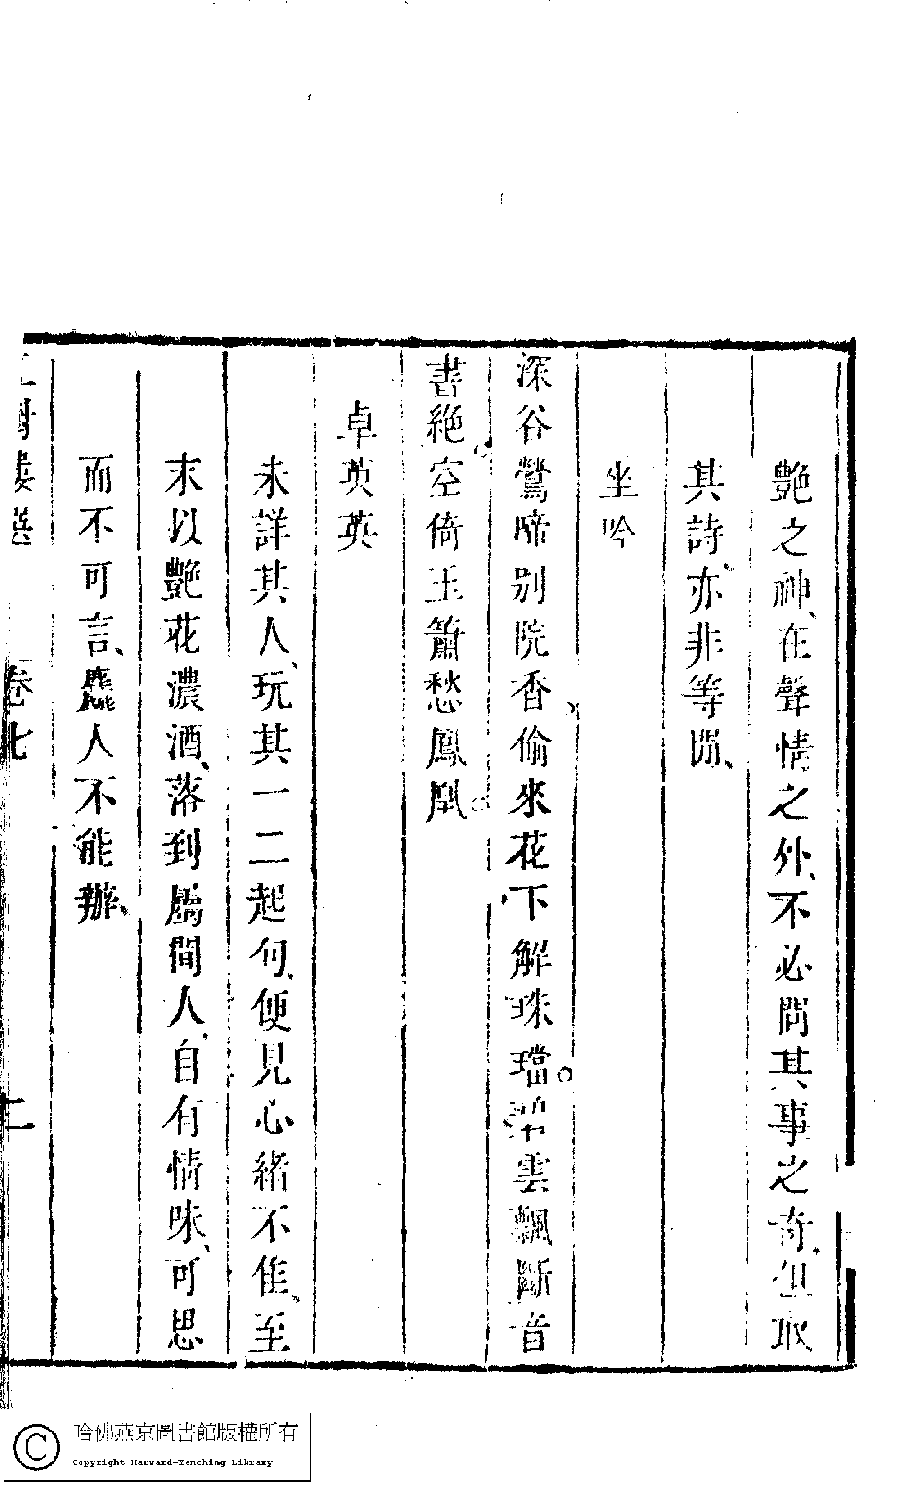 艷之神、在聲情之外、不必問其事之奇、但取
其詩、亦非等閒、
坐吟
深谷鶯啼別院香、偷來花下解珠璫。碧雲飄斷音
書絶、空倚玉簫愁鳳凰。
卓英英
未詳其人、玩其一二起句、便見心緒不佳、至
末以艷花濃酒、落到屬間人、自有情味、可思
而不可言、麤人不能辦、
卷七
二
哈佛燕京圖書館版權所有
Copyright Harvard-Yenching Library